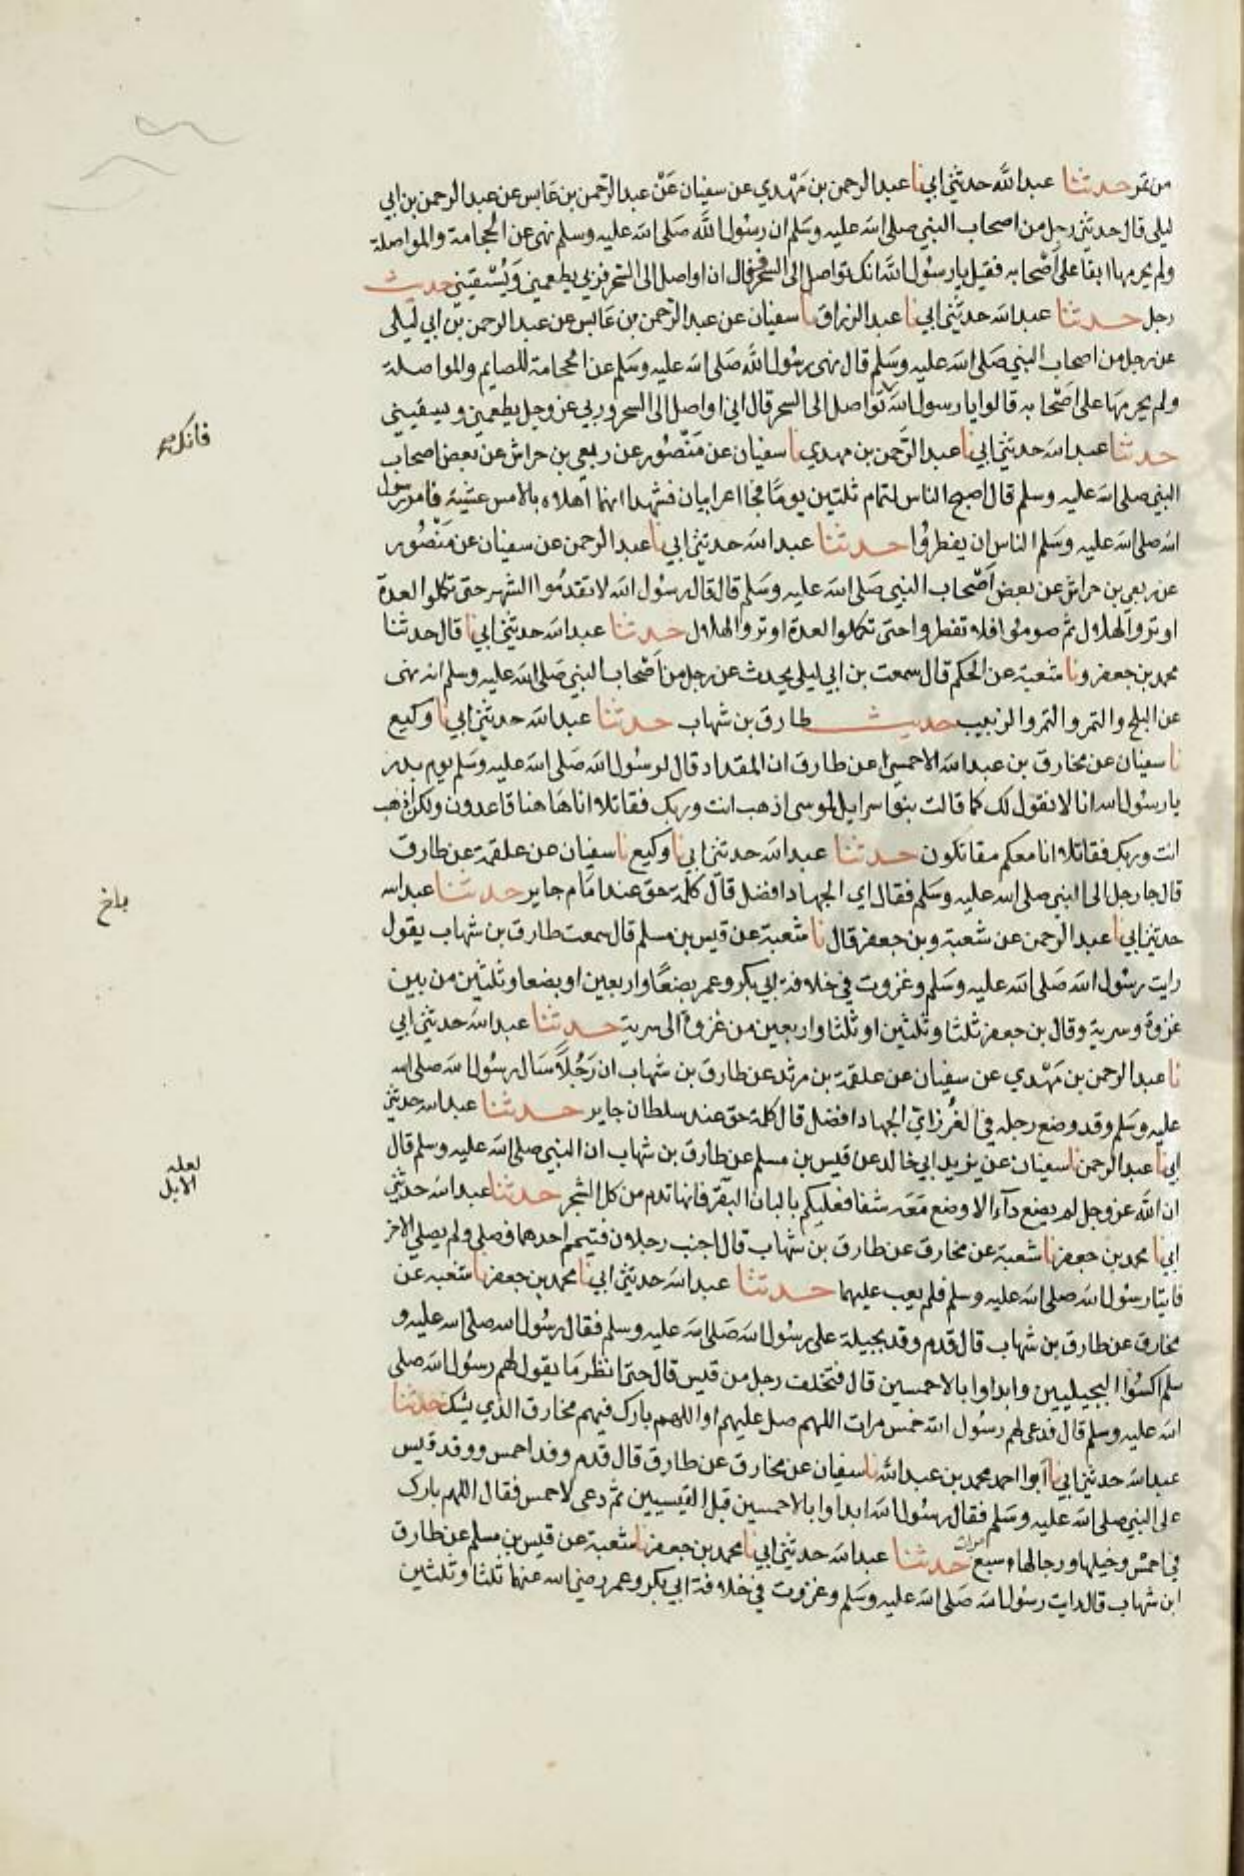 من تمر حدثنا عبدالله حدثني ابي نا عبدالرحمن بن مَهْدي عن سفيان عَنْ عبدالرَّحمن بن عَابس عن عبدالرحمن بن ابي
ليلى قال حدثني رجل من اصحاب النبي صلى الله عليه وسَلم ان رسُول الله صَلى الله عليه وسلم نهى عن الحجامة والمواصلة
ولم يحرمهما ابقا على اَصْحابه فقيل يا رسُول اللَّه انك تواصل الى السحر فقال ان اواصل الى السَّحر فربي يطعمني وَيُسْقيني حديث
رجل حدثنا عبدالله حدثني ابي نا عبدالرزاق نا سفيان عن عبدالرَّحمن بن عَابس عن عبدالرحمن بن ابي ليلى
عن رجل من اصحاب النبي صَلى الله عليه وسَلم قال نهى رسُول اللَّه صَلى الله عليه وسَلم عن الحجامة للصايم والمواصلة
ولم يحرمهَا على اَصْحابه قالوا يا رسول الله تواصل الى السحر قال اني اواصل الى السحر وربي عز وجل يطعمني ويسقيني
فانك
حدثنا عبدالله حدثني ابي نا عبدالرَّحمن بن مهدي نا سفيان عن مَنْصُور عن ربعي بن حراش عن بعض اصحاب
النبي صلى الله عليه وسلم قال اصبح الناس لتمام ثلثين يومًا فجا اعرابيان فشهدا انهما اهلاه بالامس عشية فامر رسول
الله صلى الله عليه وسَلم الناس ان يفطروُا حدثنا عبدالله حدثني ابي نا عبدالرحمن عن سفيان عن مَنْصُور
عن ربعي بن حراش عن بعض اَصْحاب النبي صَلى الله عليه وسَلم قال قال رسُول الله لا تقدمُوا الشهر حتى تكلوا العدة
او تروا الهلال ثم صوموا فلا تفطروا حتى تكلوا العدة او تروا الهلال حدثنا عبدالله حدثني ابي نا قال حدثنا
محمد بن جعفر ونا شعبة عن الحكم قال سمعت بن ابي ليلى يحدث عن رجل من اَصْحاب النبي صَلى الله عليه وسلم انه نهى
عن البلح والتمر والتمر والزبيب حديث طارق بن شهاب حدثنا عبدالله حدثني ابي نا وكيع
نا سفيان عن مخارق بن عبدالله الاحمسي عن طارق ان المقداد قال لرسُول الله صَلى الله عليه وسَلم يوم بدر
يا رسُول الله انا لا نقول لك كما قالت بنو اسرايل لموسى اذهب انت وربك فقاتلا انا هَا هنا قاعدون ولكن اذهب
انت وربك فقاتلا انا معكم مقاتلون حدثنا عبدالله حدثني ابي نا وكيع نا سفيان عن علقمة عن طارق
قال جا رجل الى النبي صلى الله عليه وسَلم فقال اي الجهاد افضل قال كلمة حق عند امَام جاير حدثنا عبدالله
حدثني ابي نا عبدالرحمن عن شعبة وبن جعفر قال نا شعبة عن قيس بن مسلم قال سمعت طارق بن شهاب يقول
رايت رسُول الله صَلى الله عليه وسَلم وغزوت في خلافة ابي بكر وعمر بضعًا واربعين او بضعا وثلثين من بين
غزوة وسرية وقال بن جعفر ثلثا وثلثين او ثلثا واربعين من غزوة الى سرية حدثنا عبدالله حدثني ابي
نا عبدالرحمن بن مَهْدي عن سفيان عن علقمة بن مرثد عن طارق بن شهاب ان رَجُلاً سَال رسُول الله صلى الله
عليه وسَلم وقد وضع رجله في الغُرز اي الجهاد افضل قال كلمة حق عند سلطان جاير حدثنا عبدالله حدثني
ابي نا عبدالرحمن نا سفيان عن يزيد ابي خالد عن قيس بن مسلم عن طارق بن شهاب ان النبي صلى الله عليه وسلم قال
لعله
الابل
ان اللَّه عز وجل لم يضع دآء الا وضع مَعَه شفا فعليكم بالبان البقر فانها تدم من كل الشجر حدثنا عبدالله حدثني
ابي نا محمد بن جعفر نا شعبة عن مخارق عن طارق بن شهاب قال اجنب رجلان فتيمم احدهما فصلى ولم يصلي الاخر
فاتيا رسُول الله صلى الله عليه وسلم فلم يعب عليهما حدثنا عبدالله حدثني ابي نا محمد بن جعفر نا شعبه عن
مخارق عن طارق بن شهاب قال قدم وفد بجيلة على رسُول الله صَلى الله عليه وسلم فقال رسُول الله صلى الله عليه و
سلم اكسُوا البجيليين وابداوا بالاحمسين قال فتخلف رجل من قيس قال حتى انظر مَا يقول لهم رسول الله صلى
الله عليه وسلم قال فدعى لهم رسُول الله خمس مرات اللهم صل عليهم او اللهم بارك فيهم مخارق الذي يشك حدثنا
عبدالله حدثني ابي نا ابوا احمد محمد بن عبداللَّه نا سفيان عن مخارق عن طارق قال قدم وفد احمس ووفد قيس
على النبي صلى الله عليه وسَلم فقال رسُول الله ابداوا بالاحمسين قبل القيسيين ثم دعى لاحمس فقال اللهم بارك
في احمس وخيلها ورجالها سبع مرات حدثنا عبدالله حدثني ابي نا محمد بن جعفر نا شعبة عن قيس بن مسلم عن طارق
ابن شهاب قال رايت رسُول الله صَلى الله عليه وسَلم وغزوت في خلافة ابي بكر وعمر رضي الله عنهما ثلثا وثلثين